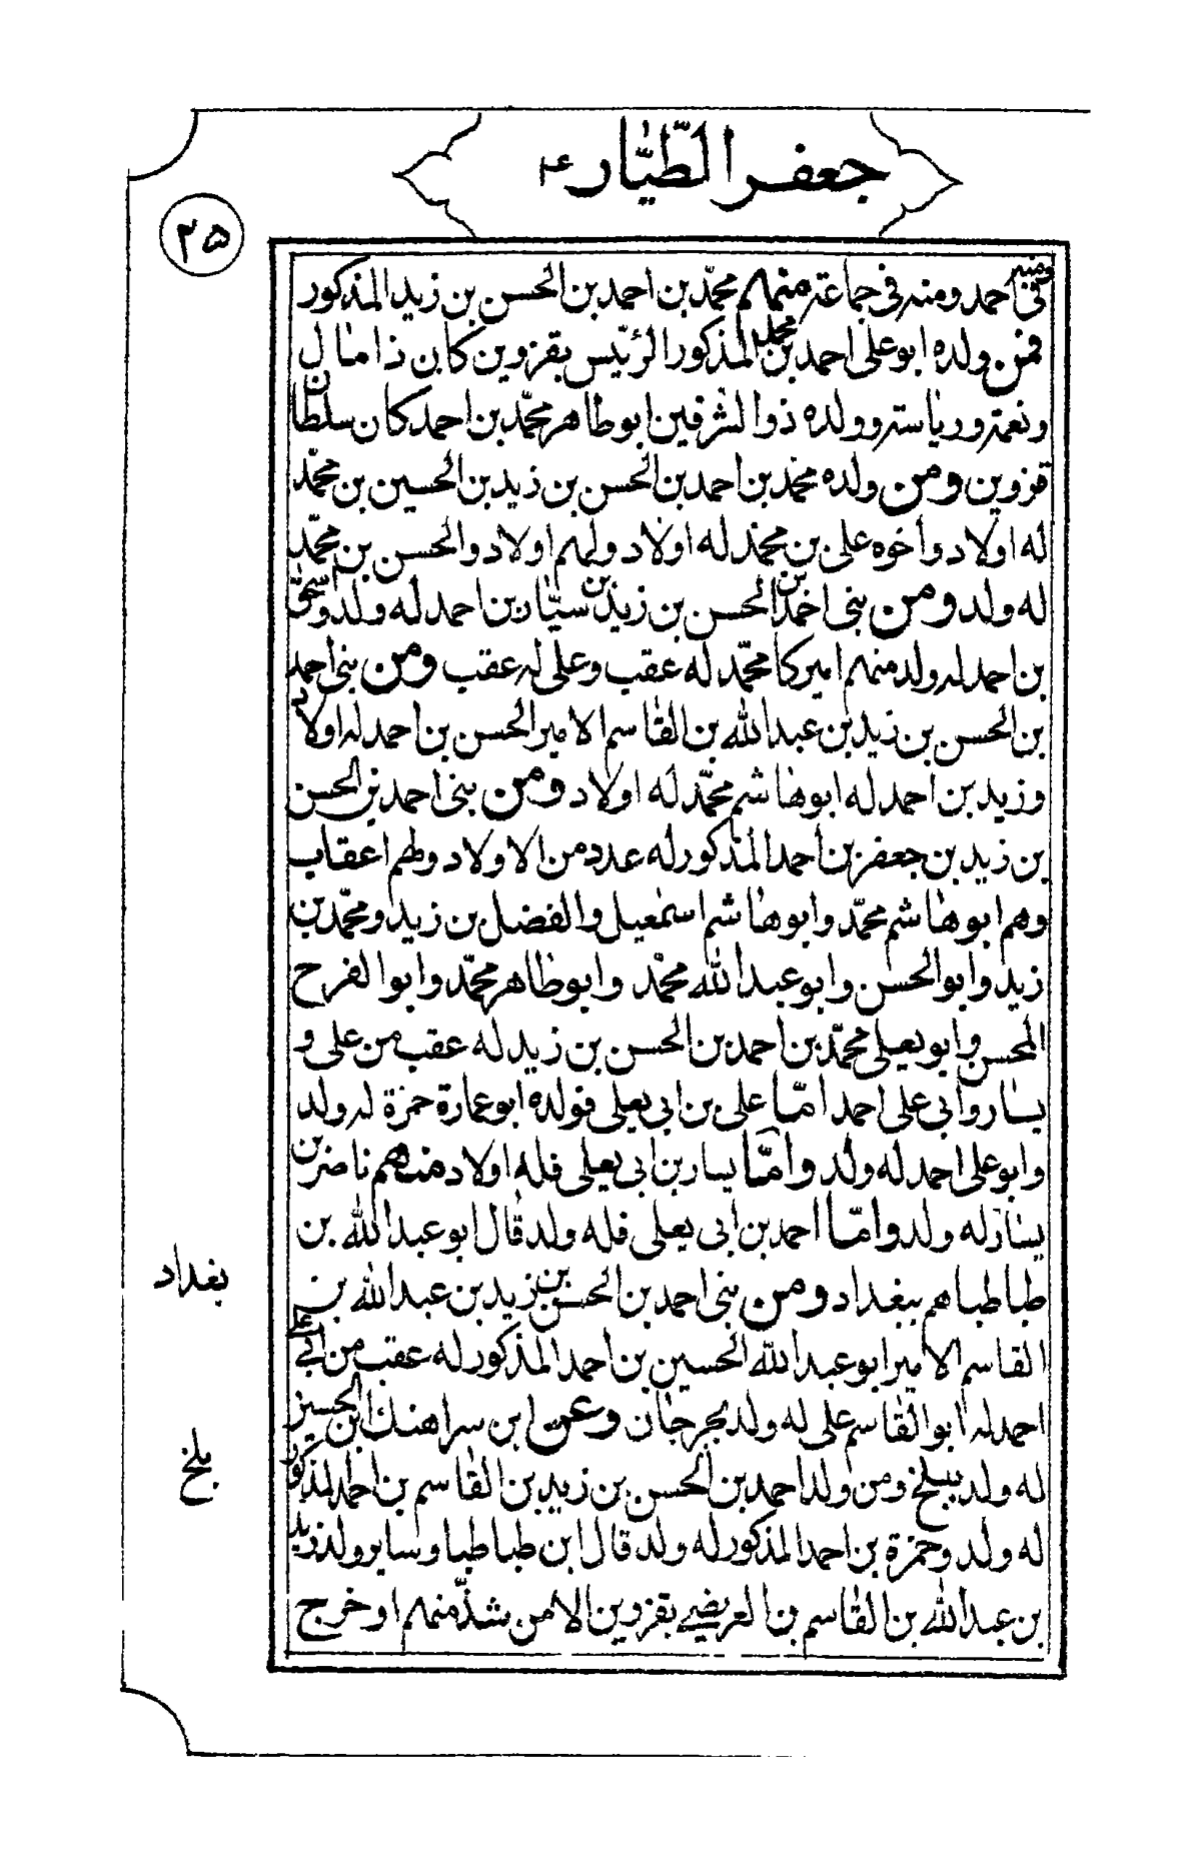 جعفر الطّيّار ع
٢۵
فى احمد ومنه فى جماعة منهم محمّد بن احمد بن الحسن بن زيد المذكور
فمن ولده ابو على احمد بن محمد المذكور الرئيس بقزوين كان ذا مال
ونعمة ورياسة وولده ذو الشرفين ابو طاهر محمّد بن احمد كان سلطان
قزوين ومن ولده محمّد بن احمد بن الحسن بن زيد بن الحسين بن محمّد
له اولاد واخوه على بن محمّد له اولاد ولهم اولاد والحسن بن محمّد
له ولد ومن بنى احمد بن الحسن بن زيد بن سيّار بن احمد له ولد
بن احمد له ولد منهم اميركا محمّد له عقب وعلى له عقب ومن بنى احمد
بن الحسن بن زيد بن عبد الله بن القاسم الامير الحسن بن احمد له اولاد
وزيد بن احمد له ابو هاشم محمّد له اولاد ومن بنى احمد بن الحسن
بن زيد بن جعفر بن احمد المذكور له عدد من الاولاد ولهم اعقاب
وهم ابو هاشم محمّد وابو هاشم اسمعيل والفضل بن زيد ومحمّد بن
زيد وابو الحسن وابو عبد الله محمّد وابو طاهر محمّد وابو الفرح
المحسن وابو يعلى محمّد بن احمد بن الحسن بن زيد له عقب من على و
يسار وابى على احمد امّا على بن ابى يعلى فولده ابو عمارة حمزة له ولد
وابو على احمد له ولد وامّا يسار بن ابى يعلى فله اولاد منهم ناصر بن
يسار له ولد وامّا احمد بن ابى يعلى فله ولد قال ابو عبد الله بن
طباطبا هم ببغداد ومن بنى احمد بن الحسن بن زيد بن عبد الله بن
القاسم الامير ابو عبد الله الحسين بن احمد المذكور له عقب من ابى على
احمد له ابو القاسم على له ولد بجرجان وعن ابن سراهنك ابن الحسين
له ولد ببلخ ومن ولد احمد بن الحسن بن زيد بن القاسم بن احمد المذكور
له ولد وحمزة بن احمد المذكور له ولد قال ابن طباطبا وساير ولد زيد
بن عبد الله بن القاسم بن العريضى بقزوين الا من شذّ منهم او خرج
بغداد
بلخ